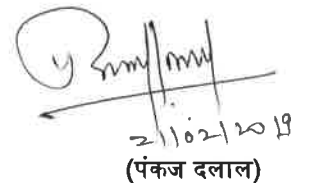 21/02/2019
(पंकज दलाल)